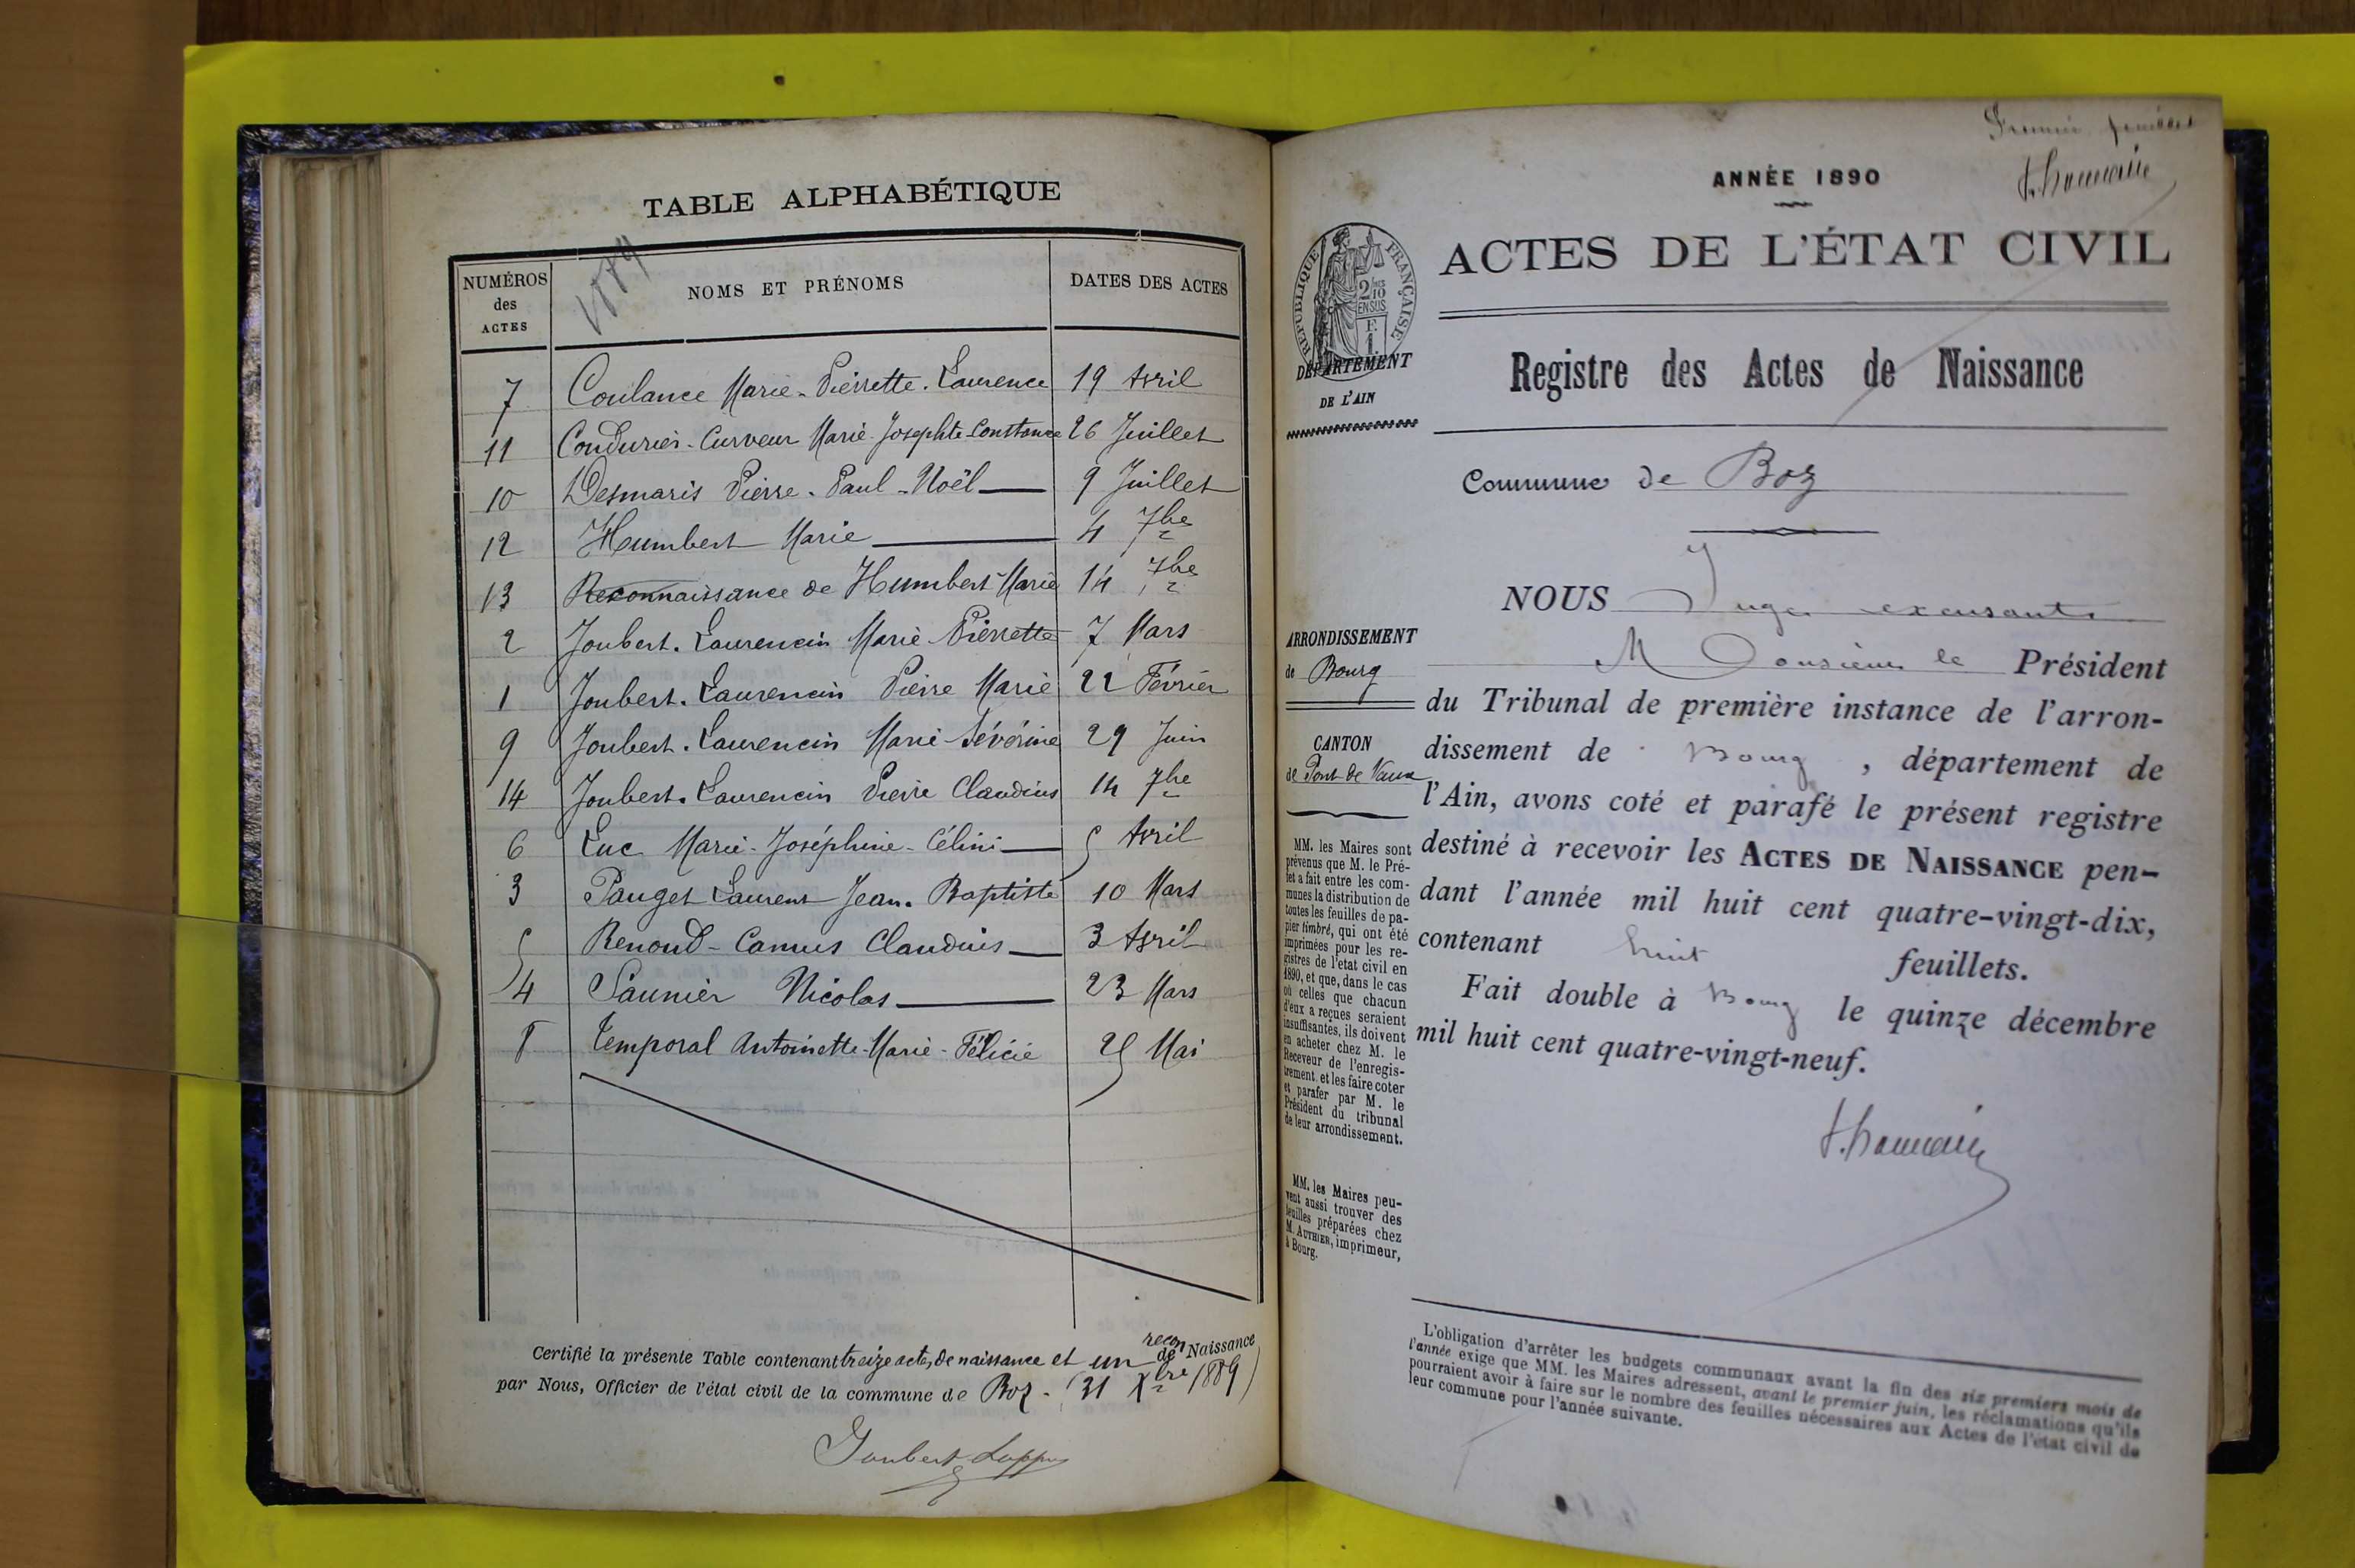 TABLE ALPHABÉTIQUE
NUMÉROS des ACTES
NOMS ET PRÉNOMS
DATES DES ACTES
7 Coulance Marie-Pierrette-Laurence 19 Avril
11 Condurier-Curveur Marie-Josephte-Constance 26 Juillet
10 Desmaris Pierre-Paul-Noël 9 Juillet
12 Humbert Marie 4 7bre
13 Reconnaissance de Humbert Marie 14 7bre
2 Joubert-Laurencin Marie Pierrette 7 Mars
1 Joubert-Laurencin Pierre Marie 22 Février
9 Joubert-Laurencin Marie-Sévérine 29 Juin
14 Joubert-Laurencin Pierre Claudius 14 7bre
6 Luc Marie-Joséphine-Célini 5 Avril
3 Pauget Laurent Jean-Baptiste 10 Mars
5 Renoud-Camus Claudius 3 Avril
4 Saunier Nicolas 23 Mars
8 Temporal Antoinette-Marie-Félicie 25 Mai
Certifié la présente Table contenant treize actes de naissance et un recon de Naissance
par Nous, Officier de l'état civil de la commune de Boz - (31 Xbre 1889)
Joubert
ANNÉE 1890
ACTES DE L'ÉTAT CIVIL
RÉPUBLIQUE FRANÇAISE
2/10 EN SUS
F. 1.
DÉPARTEMENT
DE L'AIN
Registre des Actes de Naissance
Commune de Boz
ARRONDISSEMENT
de Bourg
CANTON
de Pont de Vaux
MM. les Maires sont
prévenus que M. le Pré-
fet a fait entre les com-
munes la distribution de
toutes les feuilles de pa-
pier timbré, qui ont été
imprimées pour les re-
gistres de l'etat civil en
1890, et que, dans le cas
où celles que chacun
d'eux a reçues seraient
insuffisantes, ils doivent
en acheter chez M. le
Receveur de l'enregis-
trement et les faire coter
et parafer par M. le
Président du tribunal
de leur arrondissement.
MM. les Maires peu-
vent aussi trouver des
feuilles préparées chez
M. AUTHIER, imprimeur,
à Bourg.
NOUS Juge
Monsieur le Président
du Tribunal de première instance de l'arron-
dissement de Bourg, département de
l'Ain, avons coté et parafé le présent registre
destiné à recevoir les ACTES DE NAISSANCE pen-
dant l'année mil huit cent quatre-vingt-dix,
contenant huit feuillets.
Fait double à Bourg le quinze décembre
mil huit cent quatre-vingt-neuf.
L'obligation d'arrêter les budgets communaux avant la fin des six premiers mois de
l'année exige que MM. les Maires adressent, avant le premier juin, les réclamations qu'ils
pourraient avoir à faire sur le nombre des feuilles nécessaires aux Actes de l'état civil de
leur commune pour l'année suivante.